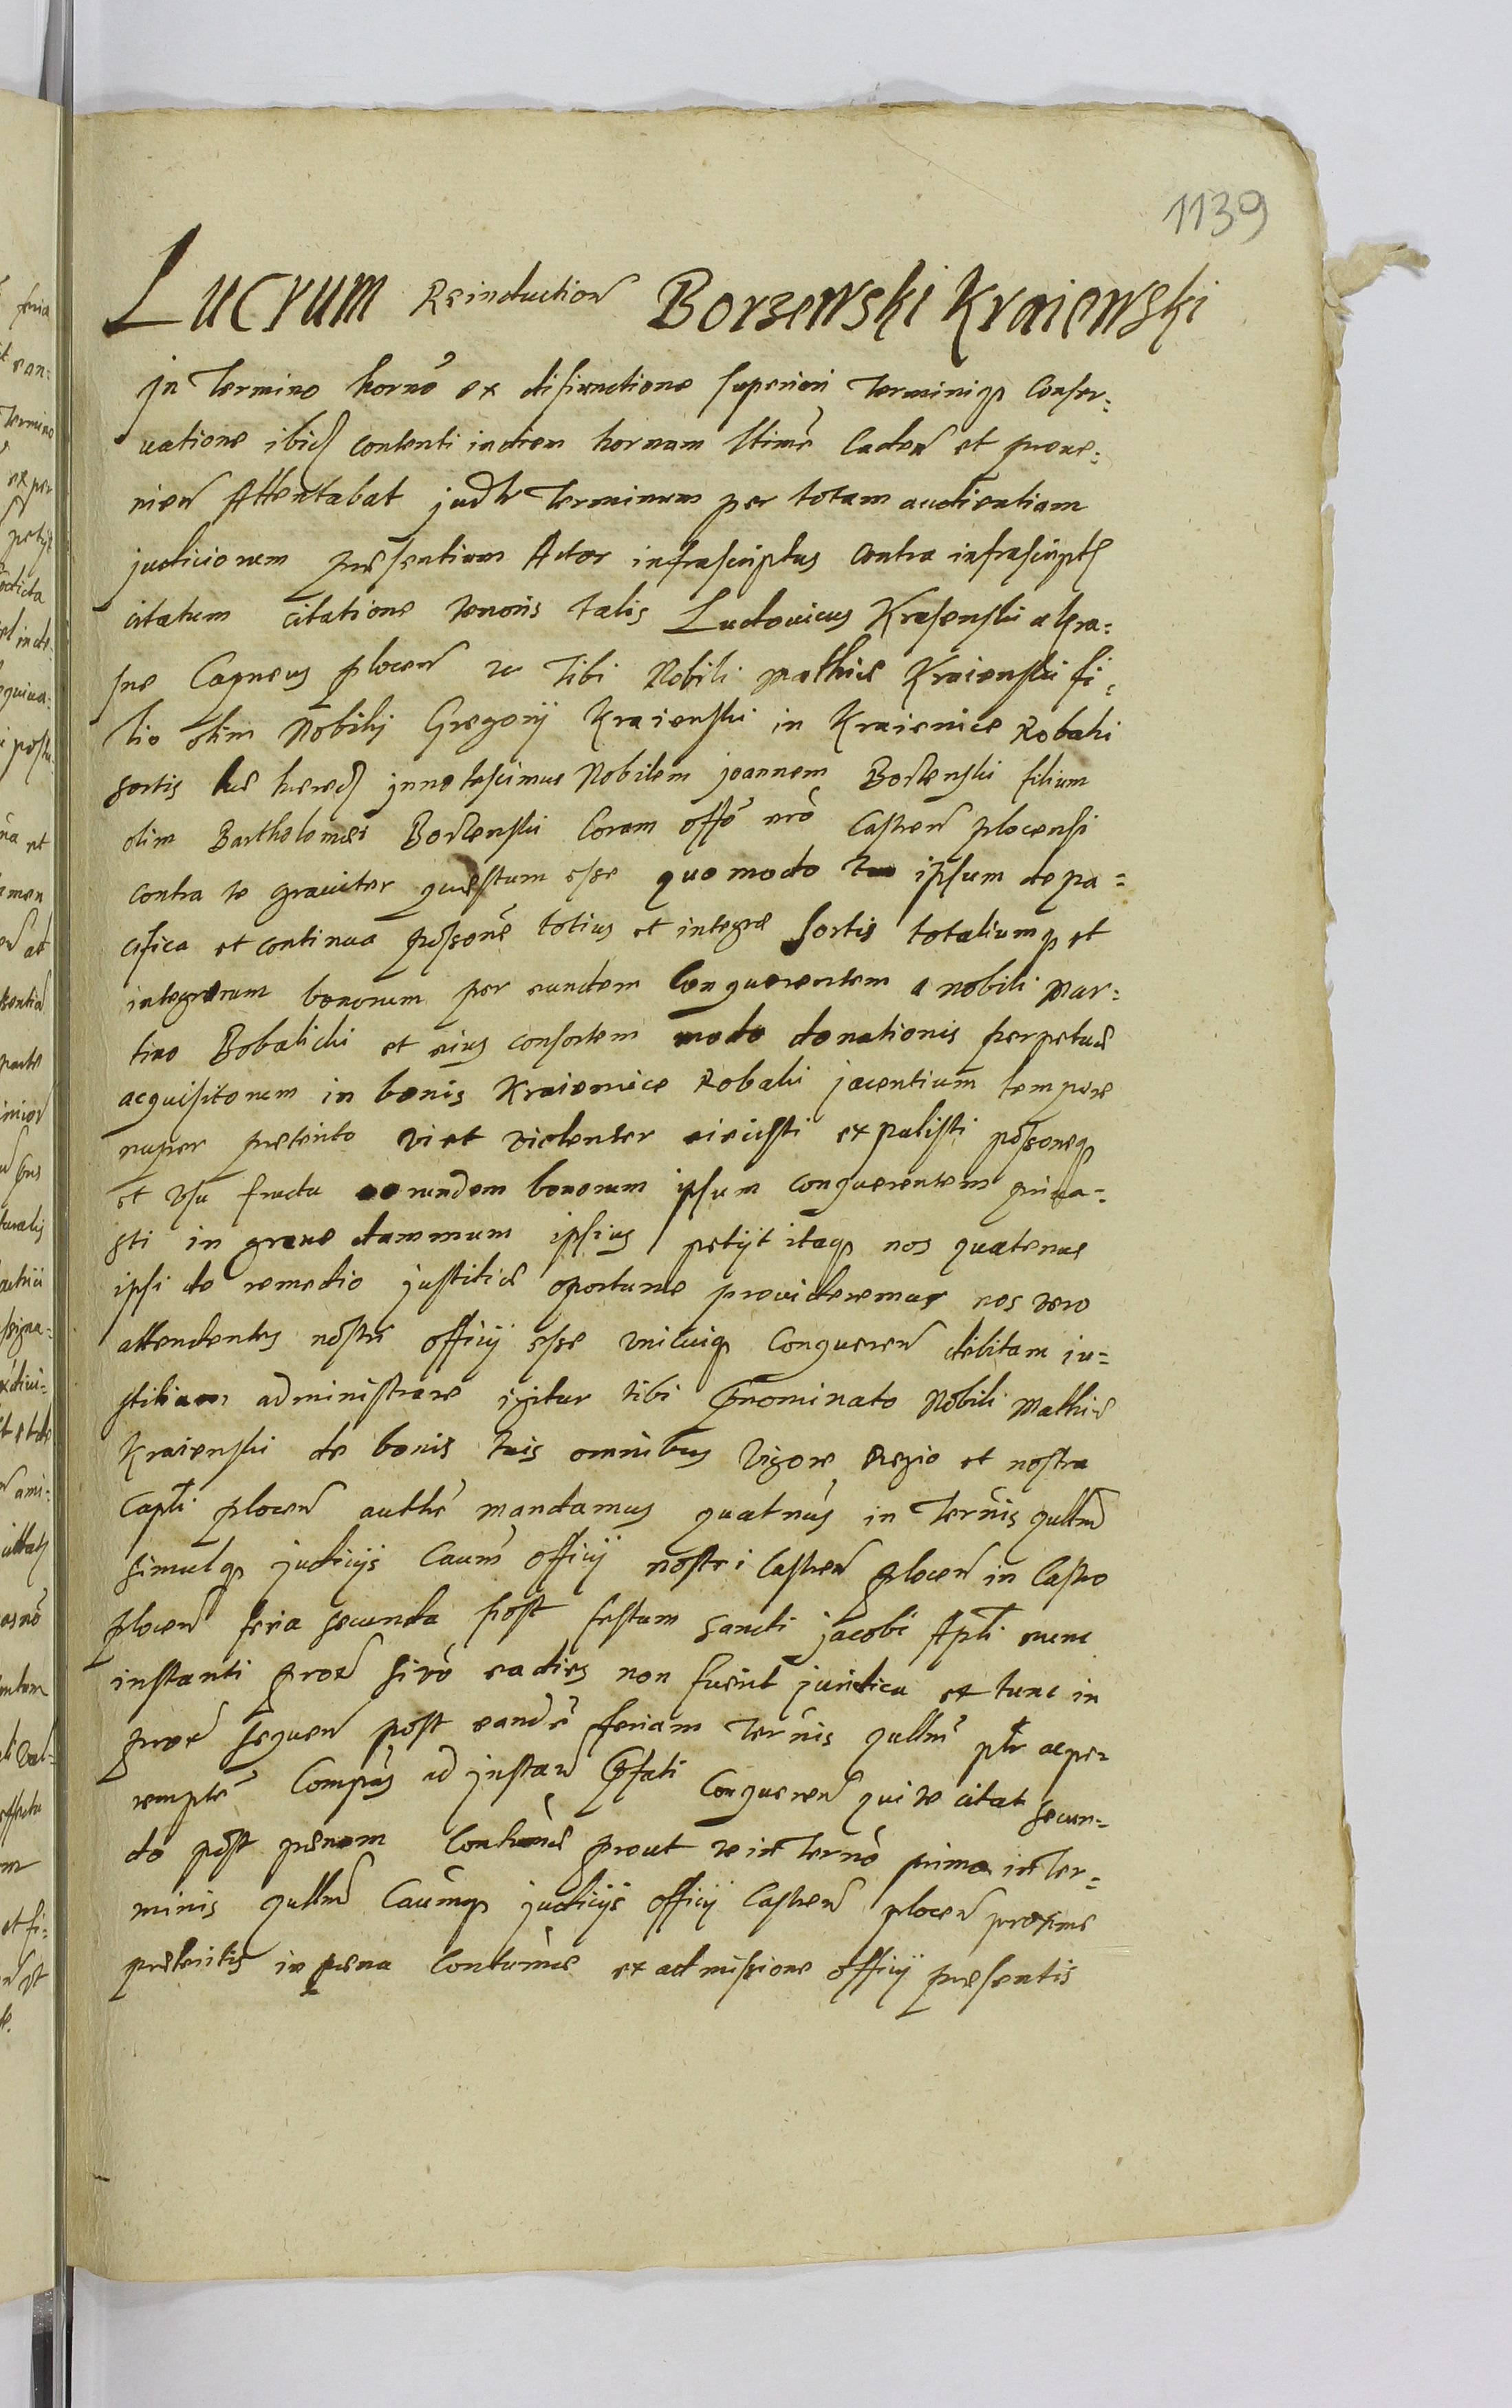 1139
Lucrum Reinduction Borzewski Kraiewski
In Termino horno ex disiunctione superiori Terminiq conser=
uatione ibid contenti indiem hornam ltime Caden et prove=
nien Attentabat judr Terminum per totam audientiam
judiciorum præsentium Actor infrascriptus contra infrascript
citatum citatione tenoris talis Ludouicus Krasenski a Kra=
sne Capneus plocen &c Tibi Nobili Mathiæ Kraienski fi=
lio olim Nobilis Gregorij Kraienski in Kraienice Robaki
sortis hered innotescimus Nobilem joannem Borzenski filium
olim Bartholomei Borzenski Coram offo nro Castren plocensi
contra te grauiter quæstum esse quomodo tu ipsum de pa=
cifica et continua possone totius et integræ sortis totaliumq et
integrorum bonorum per eundem Conquerentem a nobili Mar=
tino Bobalicki et eius consortem modo donationis perpetuæ
acquisitorum in bonis Kraienice Robaki jacentium tempore
nuper preterito vi et violenter eiecisti expulisti possoneq
et vsu fructu eorundem bonorum ipsum conquerentem priua=
sti in graue damnum ipsius petijt itaq nos quatenus
ipsi de remedio justitiæ oportune prouideremus nos vero
attendentes nostri officij esse vnicuiq Conqueren debitam iu=
stitiam administrare igitur tibi pnominato Nobili Mathiæ
Kraienski de bonis tuis omnibus Vigore Regio et nostra
Capti plocen autthe mandamus quatnus in Ternis qullm
simulq judicijs Caum officij nostri Castren plocen in Castro
plocen feria secunda post festum sancti jacobi Apli nunc
instanti prox si vo ea dies non fuerit juridica ex tunc in
prox sequen post eande feriam Ternis qullm ptr acpe=
rempte Compas ad jnstan pfati Conqueren qui te citat secun=
do post penam Contumæ prout te in Terno primo in Ter=
minis qullm Caumq judicijs officij Castren plocen proxime
preteritis in pena Contumæ ex admissione officij præsentis